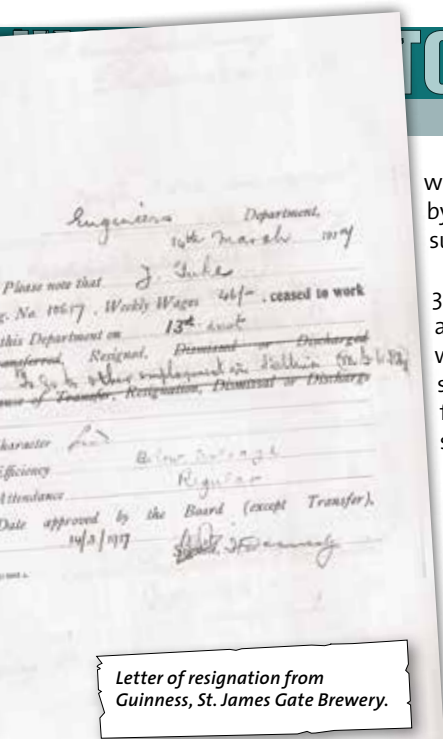 TO
Engineers Department,
14th March 1917
Please note that J. Tuke
g. No. 10617, Weekly Wages 46/-, ceased to work
this Department on 13th inst
Transferred, Resigned, Dismissed or Discharged
To go to other employment in
ause of Transfer, Resignation, Dismissal or Discharge
Character
Efficiency Below Average
Attendance Regular
Date approved by the Board (except Transfer),
14/3/1917
Letter of resignation from
Guinness, St. James Gate Brewery.
w
by
su
3
a
w
s
f
s